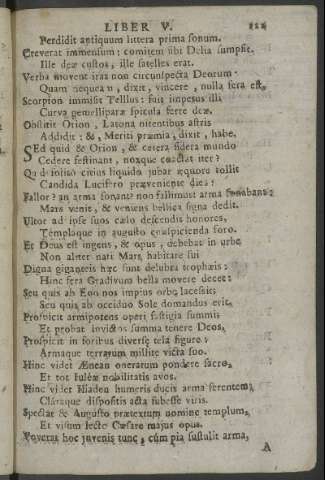 LIBER V.
Perdidit antiquum littera prima sonum.
Creverat immensum: comitem sibi Delia sumpsit.
Ille deæ custos, ille satelles erat.
Verba movent iras non circunspecta Deorum.
Quam nequeam, dixit, vincere, nulla fera est.
Scorpion immisit Tellus: fuit impetus illi
Curva gemelliparæ spicula ferre deæ.
Obstitit Orion, Latona nitentibus astris
Addidit: &, Meriti præmia, dixit, habe.
SEd quid & Orion, & cetera sidera mundo
Cedere festinant, noxque coactat iter?
Quid solito citius liquido jubar æquore tollit
Candida Lucifero præveniente dies?
Fallor? an arma sonant? non fallimur arma sonabant:
Mars venit, & veniens bellica signa dedit.
Ultor ad ipse suos cælo descendit honores,
Templaque in augusto conspicienda foro.
Et Deus est ingens, & opus, debebat in urbe
Non aliter nati Mars habitare sui
Digna giganteis hæc sunt delubra trophæis:
Hinc fera Gradivum bella movere decet:
Seu quis ab Eoo nos impius orbe lacesset;
Seu quis ab occiduo Sole domandus erit.
Prospicit armipotens operi fastigia summi:
Et probat invictos summa tenere Deos,
Prospicit in foribus diversæ tela figuræ:
Armaque terrarum milite victa suo.
Hinc videt Ænean oneratum pondere sacro,
Et tot Iuleæ nobilitatis avos.
Hinc videt Iliaden humeris ducis arma ferentem,
Claraque dispositis acta subesse viris.
Spectat & Augusto prætextum nomine templum,
Et visum lecto Cæsare majus opus.
Voverat hoc juvenis tunc, cúm pia sustulit arma,
A